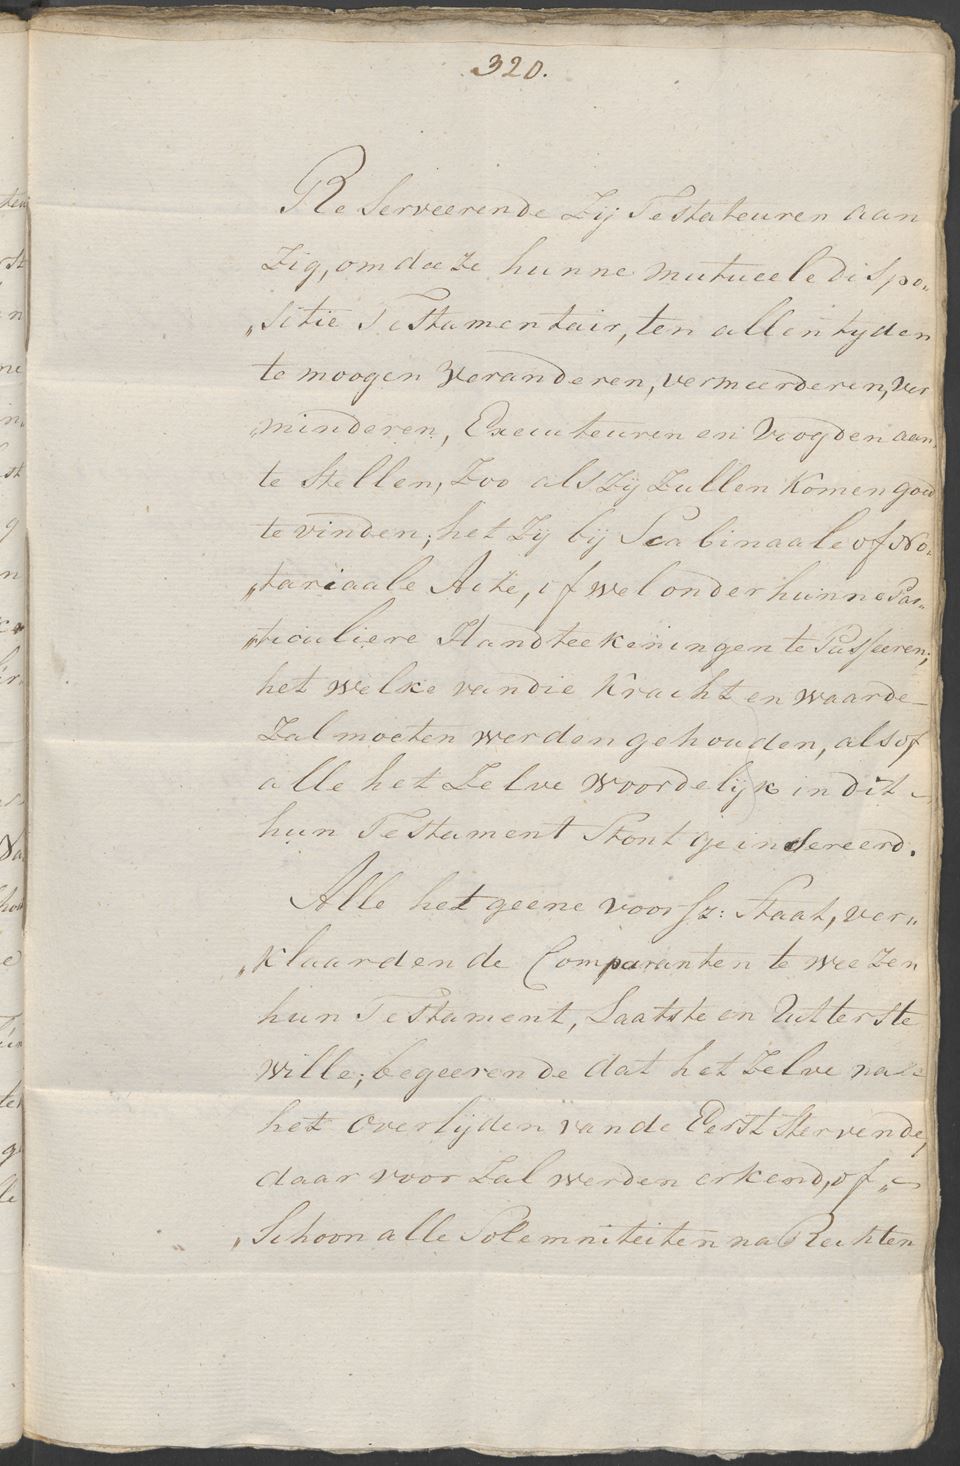 320.
Reserveerende Zij Testateuren aan
Zig, om deeze hunne mutueele dispo„
„sitie Testamentair, ten allen tyden
te moogen veranderen, vermeerderen, ver
„minderen, Executeuren en Voogden aan„
te stellen, Zoo als Zij Zullen Komen goed
te vinden; het Zij bij Scabinaale of No„
„tariaale Acte, of wel onder hunne Par„
„ticuliere Handteekeningen te Passeeren;
het welke van die Kracht en waarde
Zal moeten werden gehouden, als of
alle het Zelve woordelijk in dit
hun Testament Stont geinsereerd.
Alle het geene voorsz: Staat, ver„
„klaarden de Comparanten te weezen
hun Testament, Laatste en Uitterste
wille; begeerende dat het Zelve na
het overlijden van de Eerst stervende,
daar voor Zal werden erkend, of„
„Schoon alle Solemniteiten na Rechten